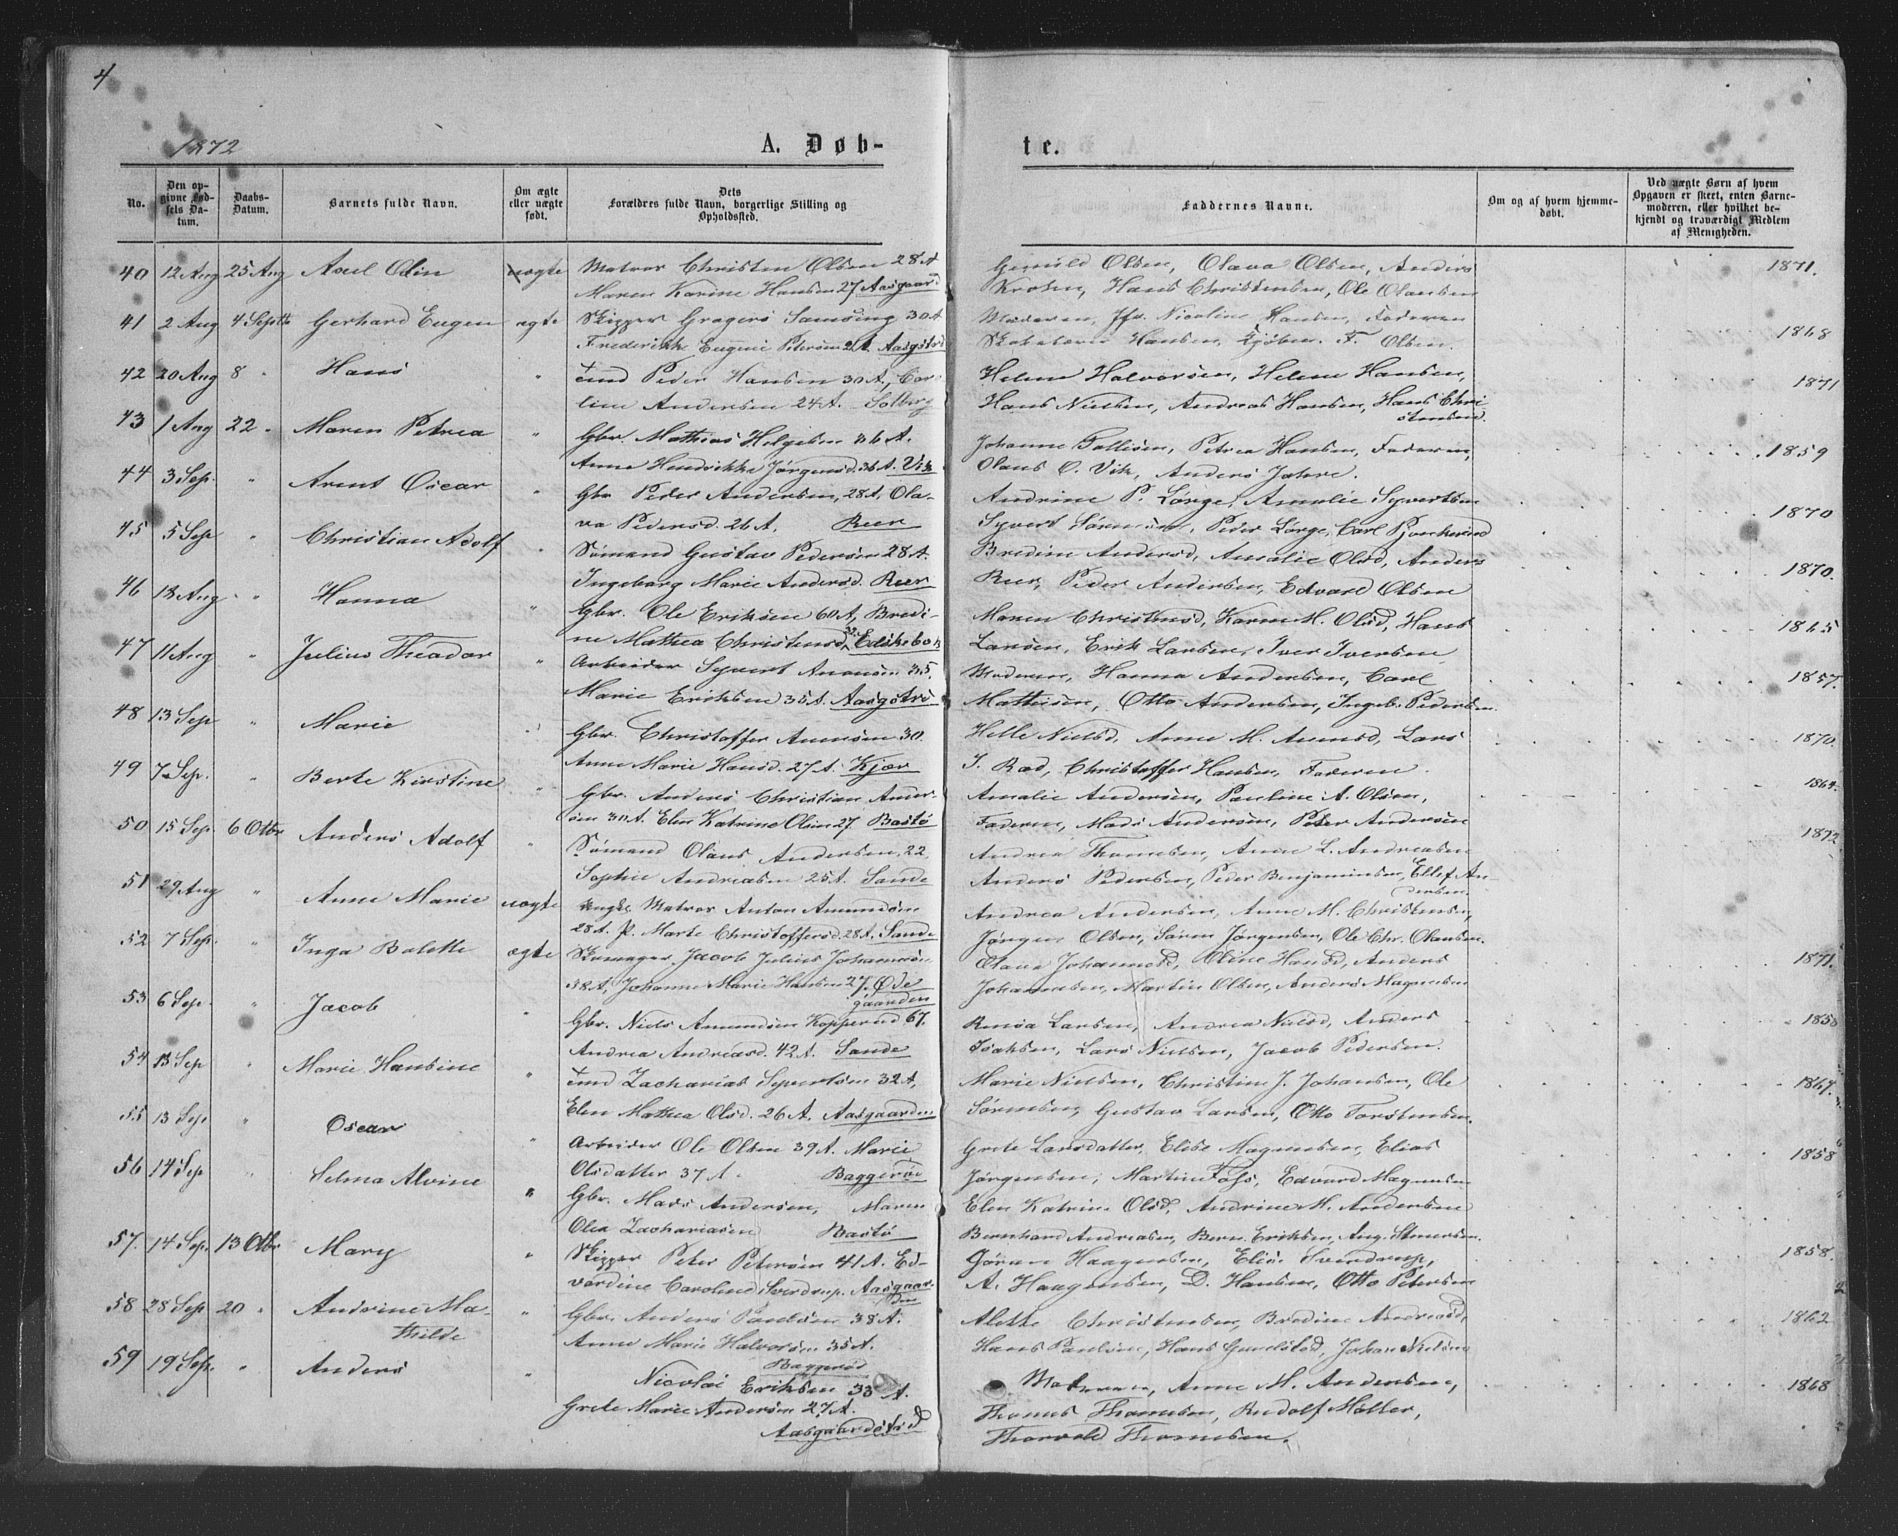 4
1872
A. Døb-
te.
No.
Den opgivne Fødsels Datum.
Daabs-Datum.
Barnets fulde Navn.
Om ægte eller uægte født.
Dets Forældres fulde Navn, borgerlige Stilling og Opholdssted.
Faddernes Navne.
Om og af hvem hjemmedøbt.
Ved uægte Børn af hvem Opgaven er skeet, enten Barnemoderen, eller hvilket bekjendt og troværdigt Medlem af Menigheden.
40 12 Aug 25 Aug Axel Odin uægte Matros Christen Olsen 28 A Olsen, Olava Olsen, Anders 1871.
Maren Karine Hansen 27 Aasgaard Krohn, Hans Christensen, Ole Olausen
41 2 Aug 4 Septb Gerhard Eugen ægte Skipper Gregers Samsing 30 A. Moderen, Jfr. Nicoline Hansen, Faderen 1868
Frederikke Eugenie Petersen Aasgstrd Hansen, Kjøbm. F. Olsen.
42 20 Aug 8 " Hans " Peder Hansen 30 A, Car- Helene Halvorsen, Helene Hansen, 1871
line Andersen 24 A. Solberg Hans Nielsen, Andreas Hansen, Hans Chri
stensen.
43 1 Aug 22 " Maren Petrea " Gbr. Mathias Helgesen 36 A. Johanne Tollisen, Petrea Hansen, Faderen, 1859
Anne Hendrikke Jørgensd. 36 A. Vik Olaus O. Vik, Anders Jahre.
44 3 Sep. " Arent Oscar " Gbr. Peder Andersen, 28 A, Ola- Andrine P. Lørge, Amalie Syvertsen 1870
va Pedersd. 26 A. Reer Syvert Sørensen, Peder Lørge, Carl
45 5 Sep " Christian Adolf " Sømand Gustav Pedersen 28 A. Bredine Andersd, Amalie Olsd, Anders 1870.
Ingeborg Marie Andersd. Reer Reer, Peder Andersen, Edvard Olsen
46 18 Aug " Hanna " Gbr. Ole Eriksen 60 A, Bredi- Maren Christensd, Karen M. Olsd, Hans 1865
ne Mathea Christensd. Larsen, Erik Larsen, Iver Iversen
47 11 Aug " Julius Theador " Arbeider Syvert Anensen 35. Moderen, Hanna Andersen, Carl 1857.
Marie Eriksen 35 A. Aasgstrd Mathisen, Otto Andersen, Ingeb. Pedersen.
48 13 Sep " Marie " Gbr. Christoffer Anensen 30. Helle Nielsd, Anne M. Anensd, Lars 1870.
Anne Marie Hansd. 27 A. Kjær I. Rød, Christoffer Hansen, Faderen.
49 7 Sep. " Berte Kirstine " Gbr. Anders Christian Ander- Amalie Andersen, Pauline A. Olsen, 1864.
sen 30 A. Elen Katrine Olsen 27. Bastø Faderen, Mads Andersen, Peter Andersen
50 15 Sep. 6 Otbr Anders Adolf " Sømand Olaus Andersen, 22, Andrea Thomesen, Anne L. Andreasen 1872
Sophie Andreasen 25 A. Sande Anders Pedersen, Peder Benjaminsen, Ellef An-
dersen.
51 29 Aug " Anne Marie uægte Ungk. Matros Anton Amundsen Andrea Andersen, Anne M. Christensen,
28 A. P. Marte Christoffersd. 28 A. Sande Jørgen Olsen, Søren Jørgensen, Ole Chr. Olausen.
52 7 Sep. " Inga Bolette ægte Skomager Jacob Julius Johannesen Olava Johannesd, Oline Hansd, Anders 1871.
38 A, Johanne Marie Hansen 27. Øde Johannesen, Martin Olsen, Anders Magnusen
gaarden
53 6 Sep. " Jacob " Gbr. Niels Amundsen 67. Larsen, Andrea Nielsd, Anders 1850
Andrea Andreasd. 42 A. Sande Isaksen, Lars Nielsen, Jacob Pedersen.
54 13 Sep " Marie Hansine " Zacharias Syvertsen 32 A, Marie Nielsen, Christine J. Johansen, Ole 1867.
Elen Mathea Olsd. 26 A. Aasgaarden Sørensen, Gustav Larsen, Otto Torstensen.
55 13 Sep. " Oscar " Arbeider Ole Olsen 39 A. Marie Grete Larsdatter, Elise Magnusen, Elias 1858
Olsdatter 37 A. Baggerød Jørgensen, Martin Foss, Edvard Magnusen
56 14 Sep " Selma Alvine " Gbr. Mads Andersen, Maren Elen Katrine Olsd, Andrine M. Andersen
Olea Zachariasen Bastø Bernhard Andreasen, Bern. Eriksen, Aug.
57. 14 Sep. 13 Otbr Mary " Skipper Peter Petersen 41 A. Ed- Gøran Haagensen, Elise Sverdrup, 1858.
vardine Caroline Sverdrup. Aasgaar- A. Haagensen, D. Hansen, Otto Petersen
den
58 28 Sep 20 " Andrine Ma- " Gbr. Anders Paulsen 38 A. Alette Christensen, Bredine Andreasd, 1862
thilde Anne Marie Halvorsen 35 A. Hans Paulsen, Hans, Johan Nielsen
Baggerød
59 19 Sep. " Anders " Nicolai Eriksen 33 A. Moderen, Anne M. Andersen, 1868
Grete Marie Andersen 27 A. Thomas Thomesen, Rudolf Møller,
Aasgaardstrd Thorvald Thomesen.